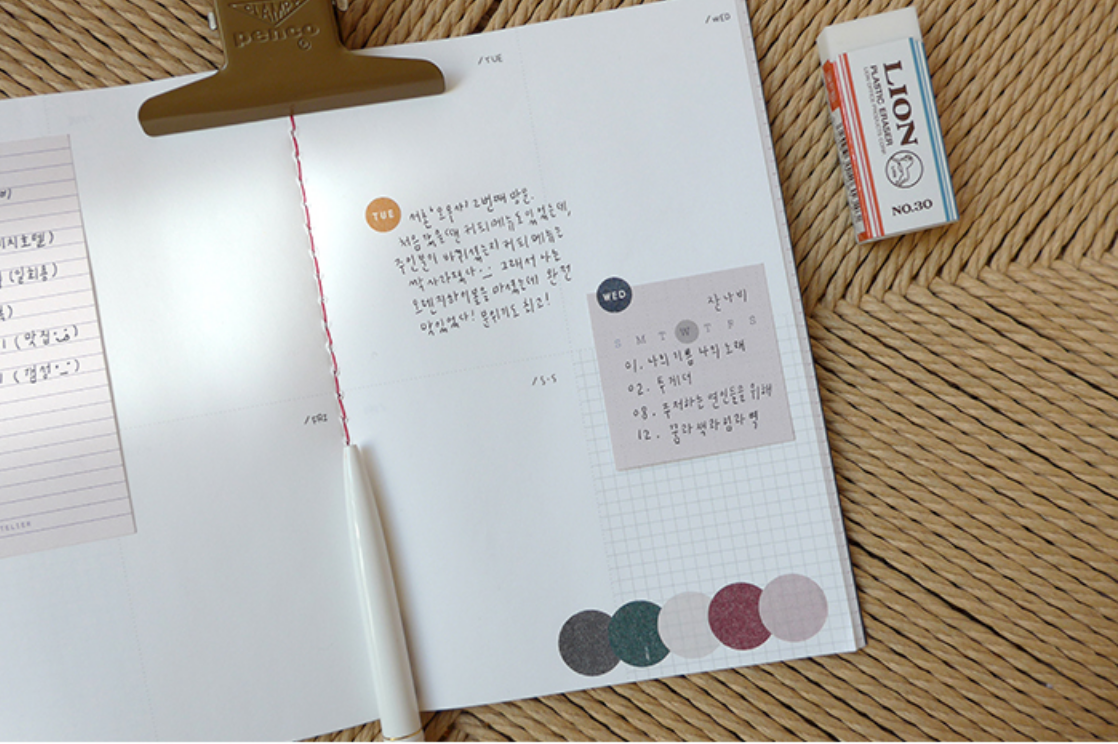 penco
®
/TUE
/WED
TUE
처음 갔을 땐 커피메뉴도 있었는데,
주인분이 바뀌셨는지 커피 메뉴는
싹 사라졌다 그래서 나는
오렌지하이볼을 마셨는데 완전
맛있었다! 분위기도 최고!
LION
PLASTIC ERASER
NO.30
WED
잔나비
S M T W T F S
01. 나의 기쁨 나의 노래
02. 투게더
08. 주저하는 연인들을 위해
12. 꿈과 책과 힘과 벽
(맛집
(갬성
/FRI
/S·S